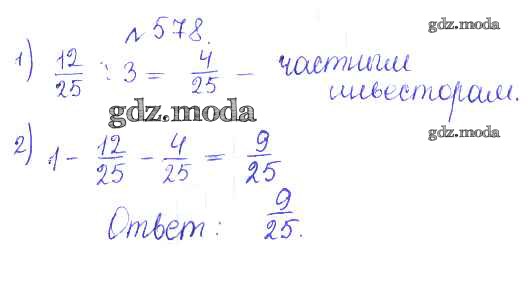 № 578.
gdz.moda
1) 12/25 : 3 = 4/25 - частным
инвесторам.
gdz.moda
2) 1 - 12/25 - 4/25 = 9/25
gdz.moda
Ответ: 9/25.